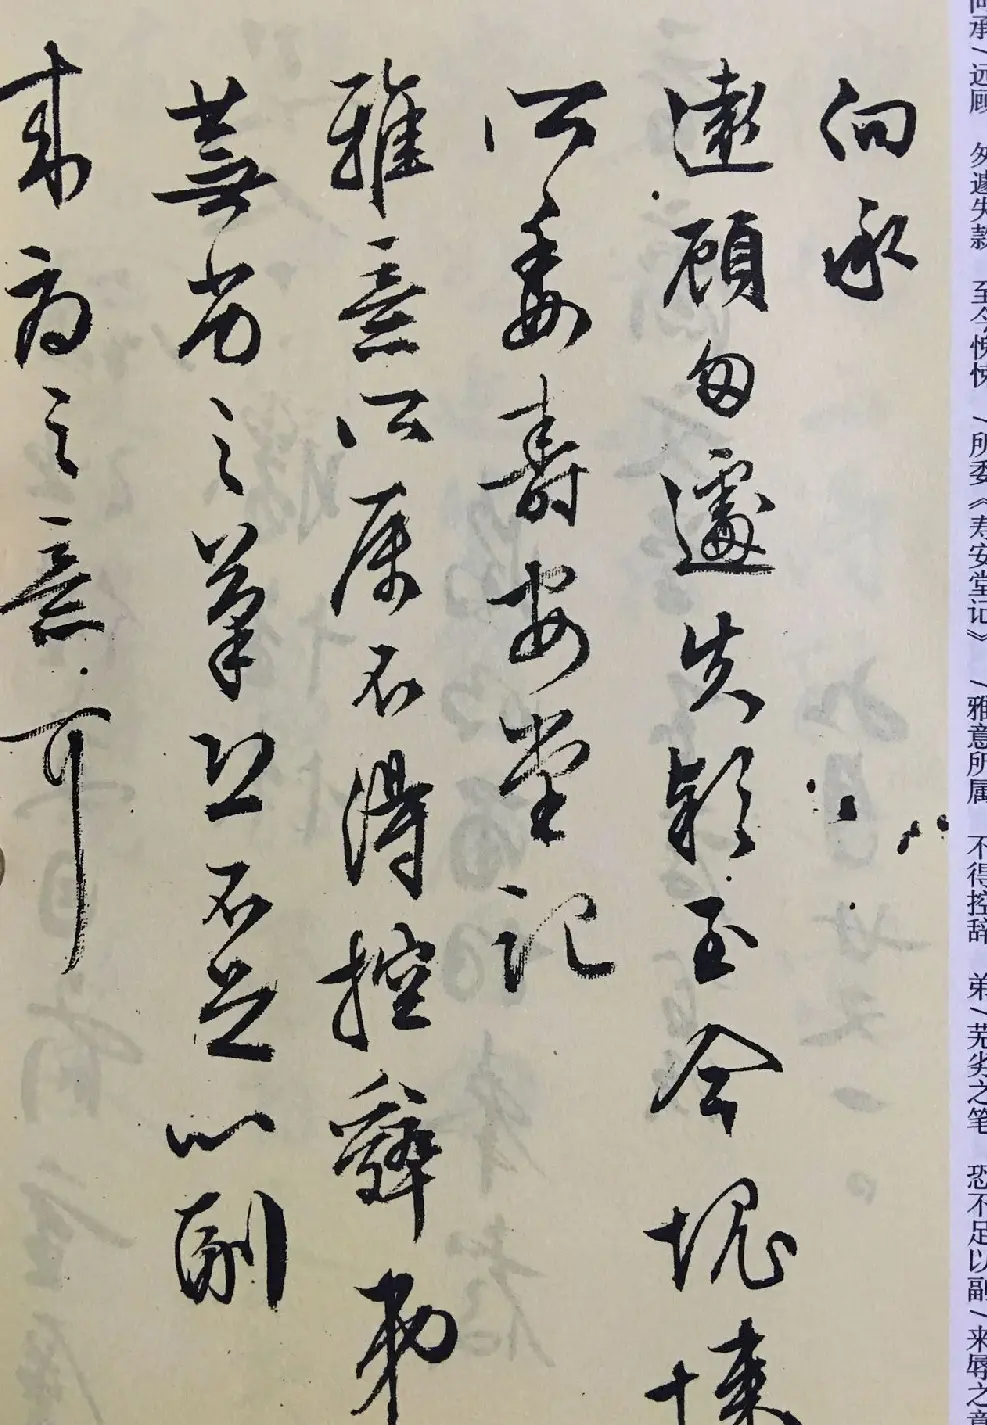 向承/远顾 匆遽失款 至今愧悚 /所委《寿安堂记》 /雅意所属 不得控辞 弟/芜劣之笔 恐不足以副/来辱之意
向承
遠顧匆遽失款至今愧悚
所委壽安堂記
雅意所属不得控辭弟
蕪劣之筆恐不足以副
来辱之意